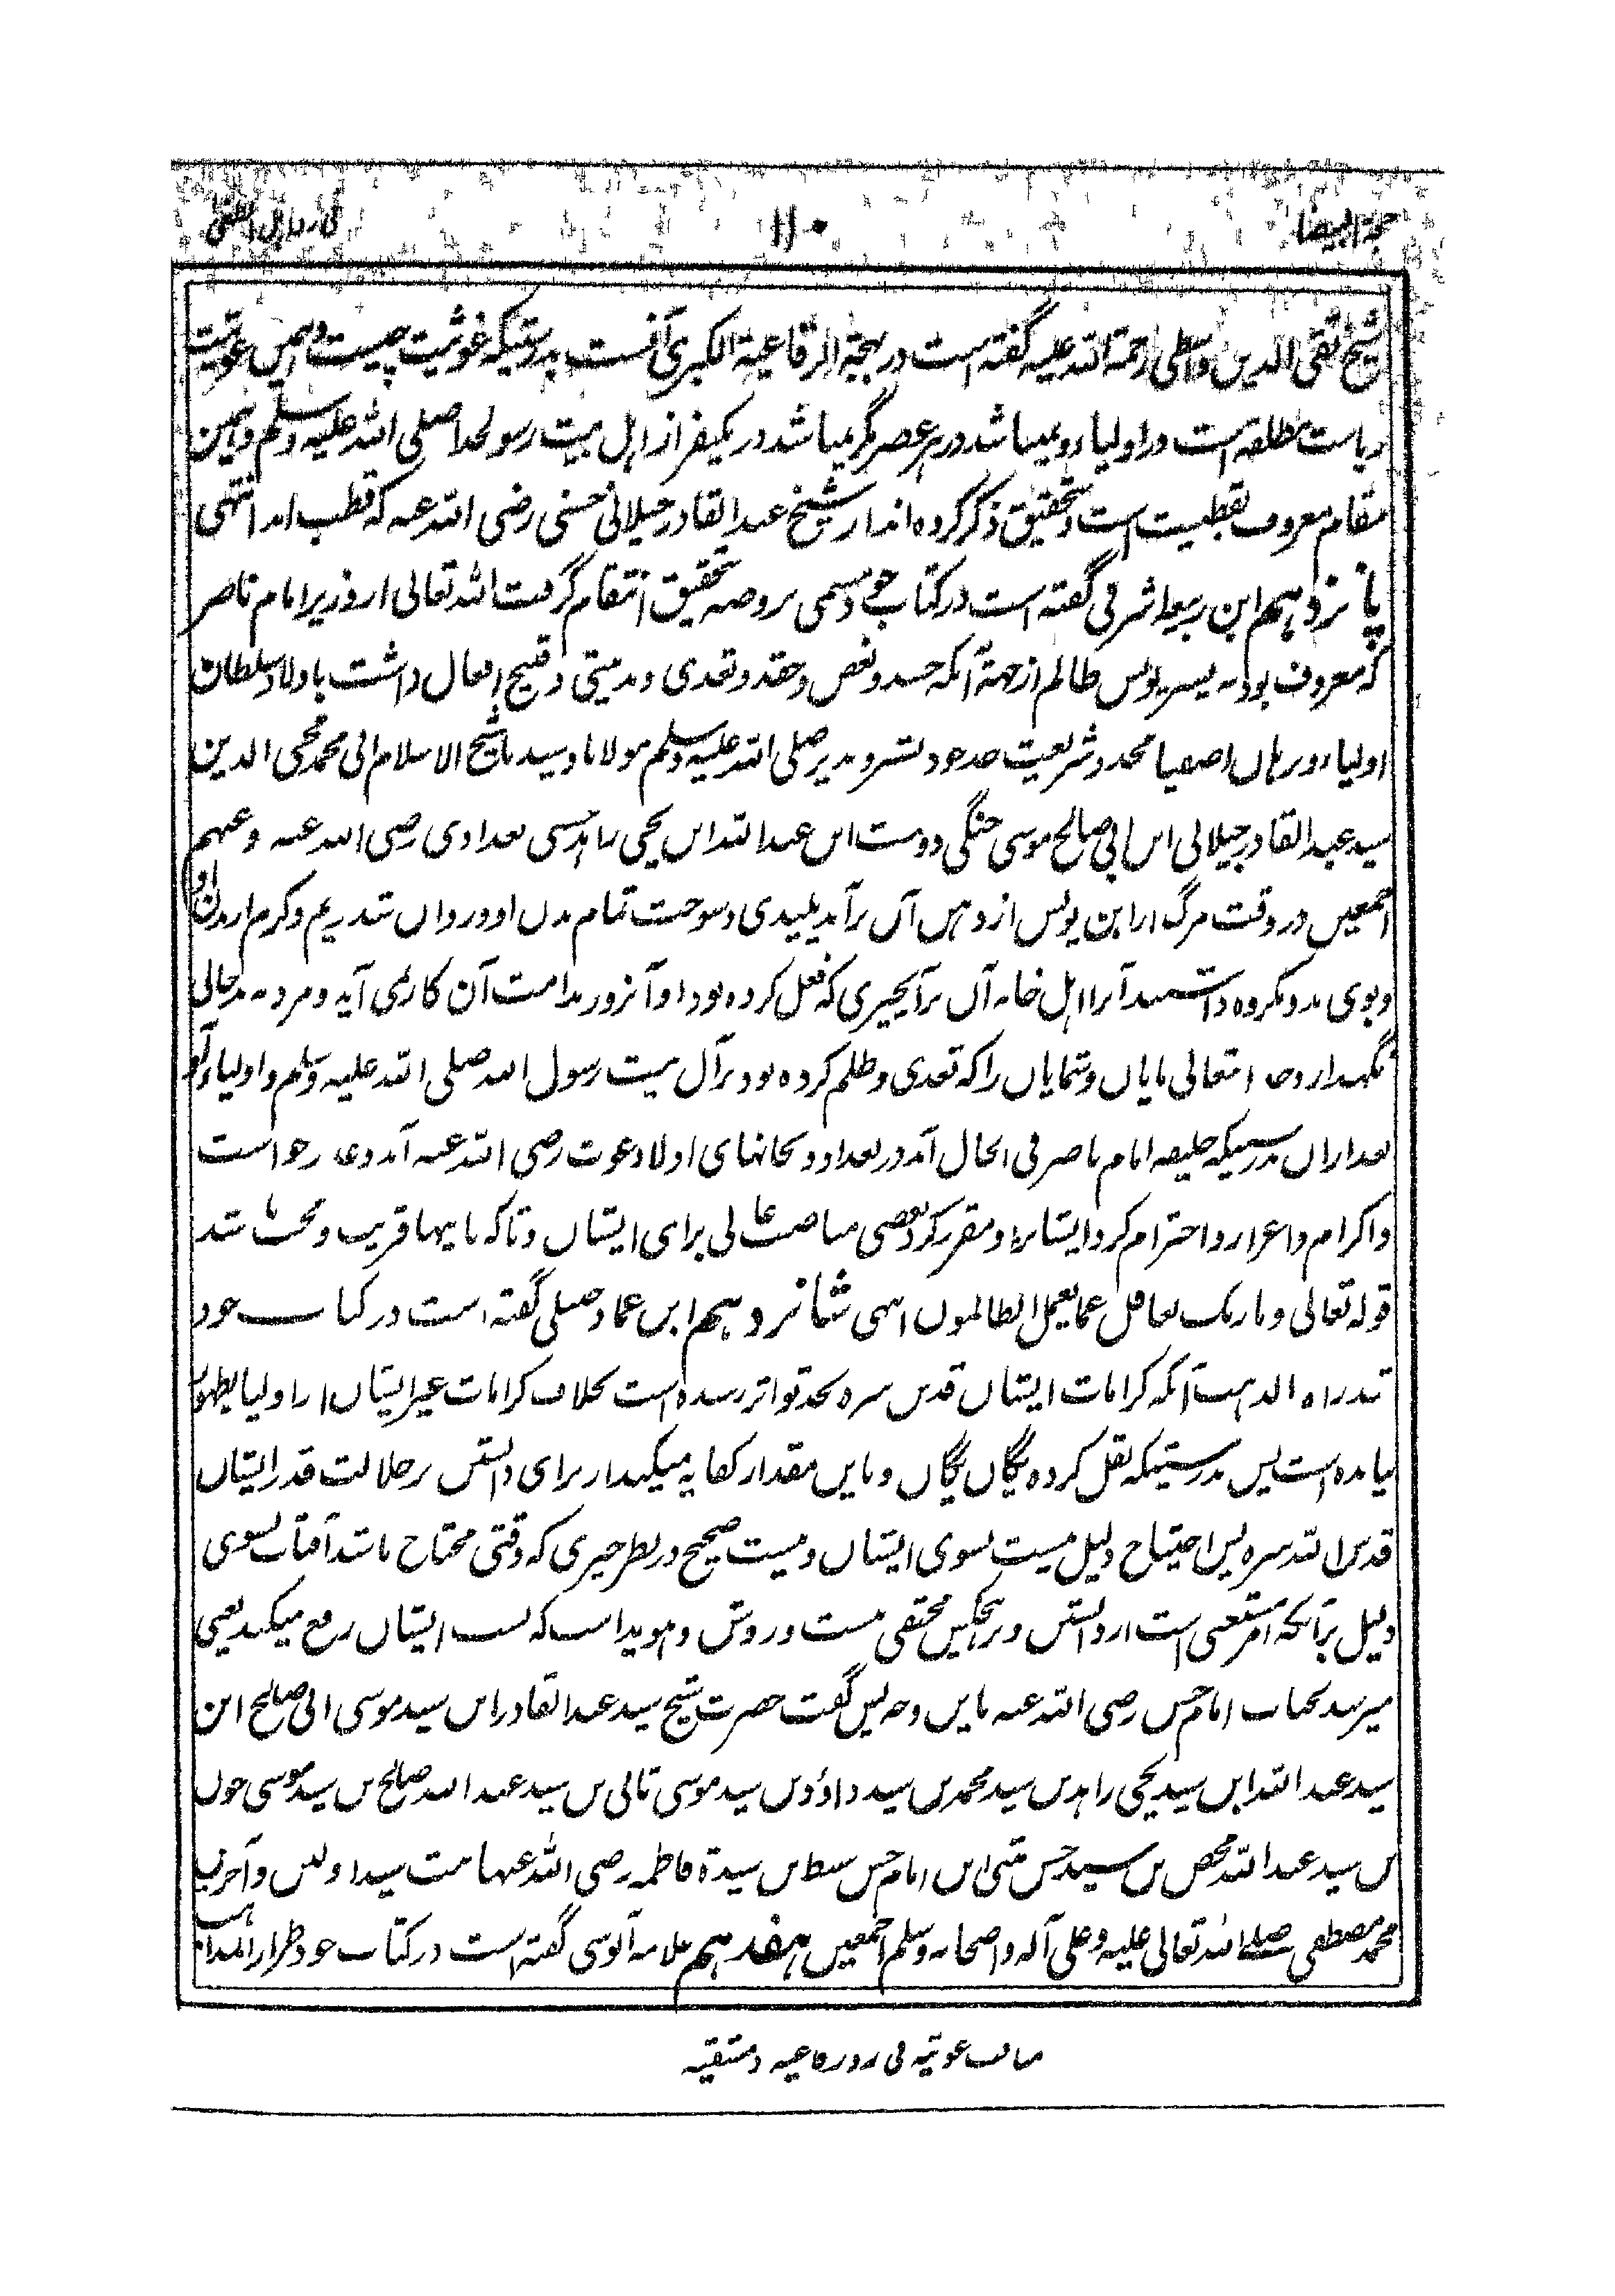 حجة البیضا ۱۱۰
شیخ تقی الدین واسطی رحمة الله علیه گفته است در بهجة الرفاعیة الکبری آنست بدرستیکه غوثیت چیست و همین غوثیت
ریاست مطلقه است در اولیاء و نمیباشد در هر عصر مگر میباشد در یکنفر از اهل بیت رسولخدا صلی الله علیه وسلم و این
مقام معروف بقطبیت است و تحقیق ذکر کرده اند از شیخ عبد القادر جیلانی حسنی رضی الله عنه که قطب اند انتهی
پانزدهم ابن ربیعه اشرفی گفته است در کتاب خود مسمی بروضه تحقیق انتقام گرفت الله تعالی از وزیر امام ناصر
که معروف بود به پسر یونس ظالم از جهة آنکه حسد و بغض و حقد و تعدی و بدنیتی و قبیح افعال داشت با ولاد سلطان
اولیاء و برهان اصفیا مجدد شریعت جد خود بشیر و نذیر صلی الله علیه وسلم مولانا و سیدنا شیخ الاسلام ابی محمد محی الدین
سید عبد القادر جیلانی ابن ابی صالح موسی جنگی دوست ابن عبد الله ابن یحیی زاهد حسنی بغدادی رضی الله عنه و عنهم
اجمعین در وقت مرگ ابن یونس از دهن آن برآمد پلیدی و سوخت تمام بدن او و روان شد ریم و کرم از بدن او
و بوی بد و مکروه داشتند آنرا اهل خانه آن برآنچیزی که فعل کرده بود او آنروز ندامت آن کار نمی آید و مرد به بدحالی
نگهدارد خدایتعالی مایان و شمایان را که تعدی و ظلم کرده بود بر آل بیت رسول الله صلی الله علیه وسلم و اولیاء
بعد ازان بدرستیکه خلیفه امام ناصر فی الحال آمد در بغداد و بخانهای اولاد غوث رضی الله عنه آمد و عذر خواست
و اکرام و اعزاز و احترام کرد ایشانرا و مقرر کرد بعضی مناصب عالی برای ایشان و تاکه باینها قریب و محب شد
قوله تعالی و ما ربک بغافل عما یعمل الظالمون انتهی شانزدهم ابن عماد حنبلی گفته است در کتاب خود
شذرات الذهب آنکه کرامات ایشان قدس سره بحد تواتر رسیده است بخلاف کرامات غیر ایشان از اولیا بظهور
نیامده است پس بدرستیکه نقل کرده یگان یگان و باین مقدار کفایه میکند از برای دانستن بر جلالت قدر ایشان
قدس الله سره پس احتیاج دلیل نیست بسوی ایشان و نیست صحیح در نظر چیزی که وقتی محتاج باشد آفتاب بسوی
دلیل برآنچه امر مستغنی است از دانستن و بر هیچکس مخفی نیست و روشن و هویداست که نسب ایشان رفع میکند یعنی
میرسد بجناب امام حسن رضی الله عنه باین وجه پس گفت حضرت شیخ سید عبد القادر ابن سید موسی ابی صالح ابن
سید عبد الله ابن سید یحیی زاهد بن سید محمد بن سید داؤد بن سید موسی ثانی بن سید عبد الله صالح بن سید موسی جون
بن سید عبد الله محض بن سید حسن مثنی ابن امام حسن سبط بن سیدة فاطمه رضی الله عنها بنت سید اولین و آخرین
محمد مصطفی صلی الله تعالی علیه و علی آله و اصحابه وسلم اجمعین هفدهم علامه آلوسی گفته است در کتاب خود طراز المذهب
مناقب غوثیه فی رد رفاعیه دمشقیه